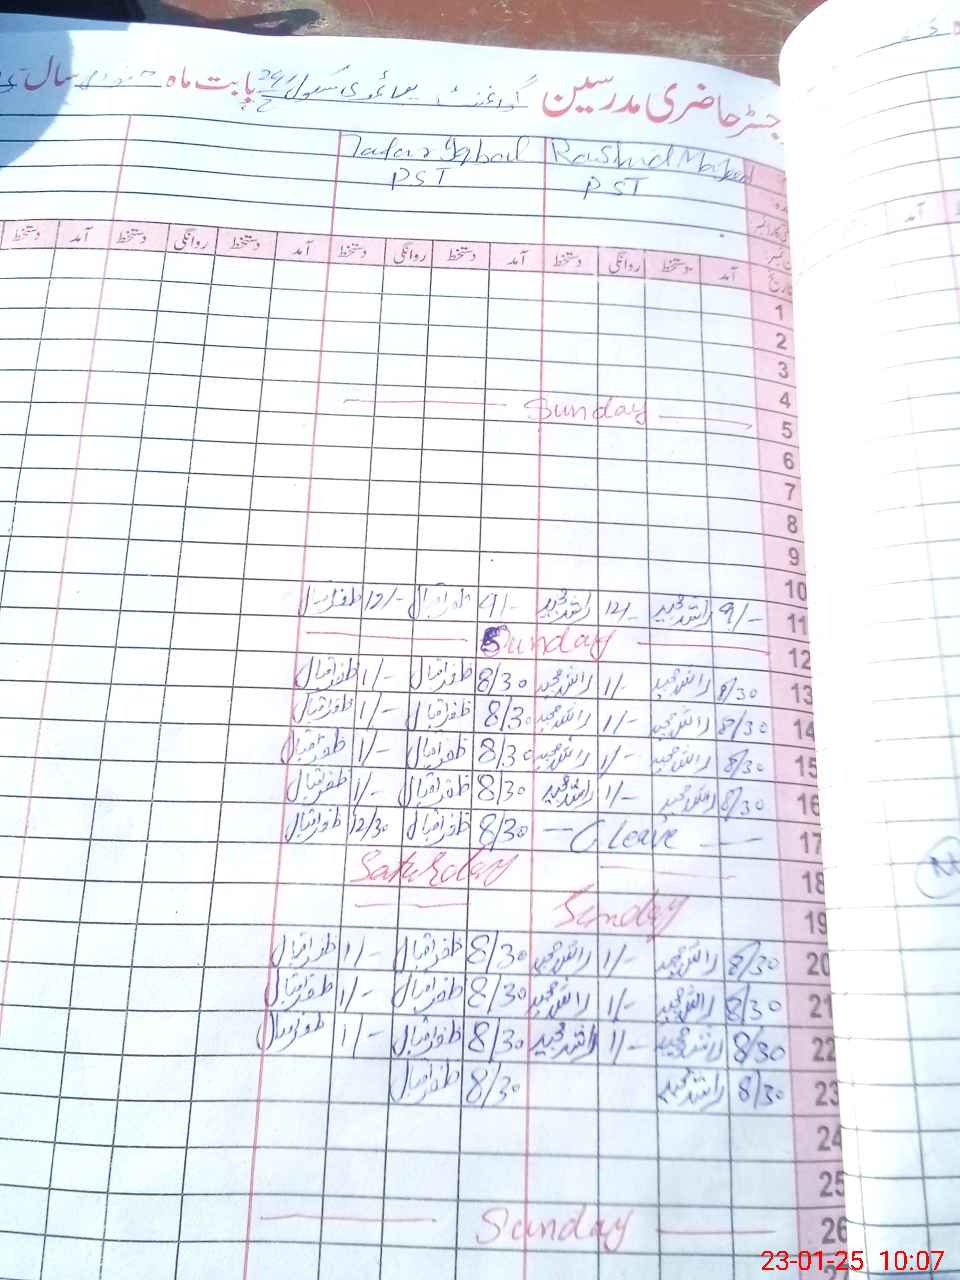 رجسٹر حاضری مدرسین گورنمنٹ سکول بابت ماہ جنوری سال
Rashid Majeed Zafar Iqbal
PST PST
آمد دستخط روانگی دستخط آمد دستخط روانگی دستخط آمد دستخط روانگی دستخط آمد دستخط
تاریخ
1
2
3
4
Sunday
5
6
7
8
9
10
11 9/- راشد مجید 12/- راشد مجید 9/- ظفر اقبال 12/- ظفر اقبال
Sunday
12
13 8/30 راشد مجید 1/- راشد مجید 8/30 ظفر اقبال 1/- ظفر اقبال
14 8/30 راشد مجید 1/- راشد مجید 8/30 ظفر اقبال 1/- ظفر اقبال
15 8/30 راشد مجید 1/- راشد مجید 8/30 ظفر اقبال 1/- ظفر اقبال
16 8/30 راشد مجید 1/- راشد مجید 8/30 ظفر اقبال 1/- ظفر اقبال
17 C leave 8/30 ظفر اقبال 12/30 ظفر اقبال
18 Saturday
19 Sunday
20 8/30 راشد مجید 1/- راشد مجید 8/30 ظفر اقبال 1/- ظفر اقبال
21 8/30 راشد مجید 1/- راشد مجید 8/30 ظفر اقبال 1/- ظفر اقبال
22 8/30 راشد مجید 1/- راشد مجید 8/30 ظفر اقبال 1/- ظفر اقبال
23 8/30 راشد مجید 8/30 ظفر اقبال
24
25
26 Sunday
آمد
23-01-25 10:07